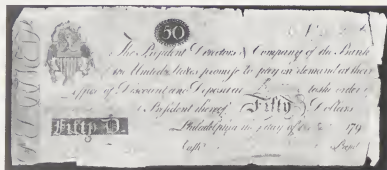 50
The President Directors & Company of the Bank
of the United States promise to pay on demand at their
Office of Discount and Deposit in to the order
President thereof Fifty Dollars
Fifty D. Philadelphia the day of 179
Cash. Presid.